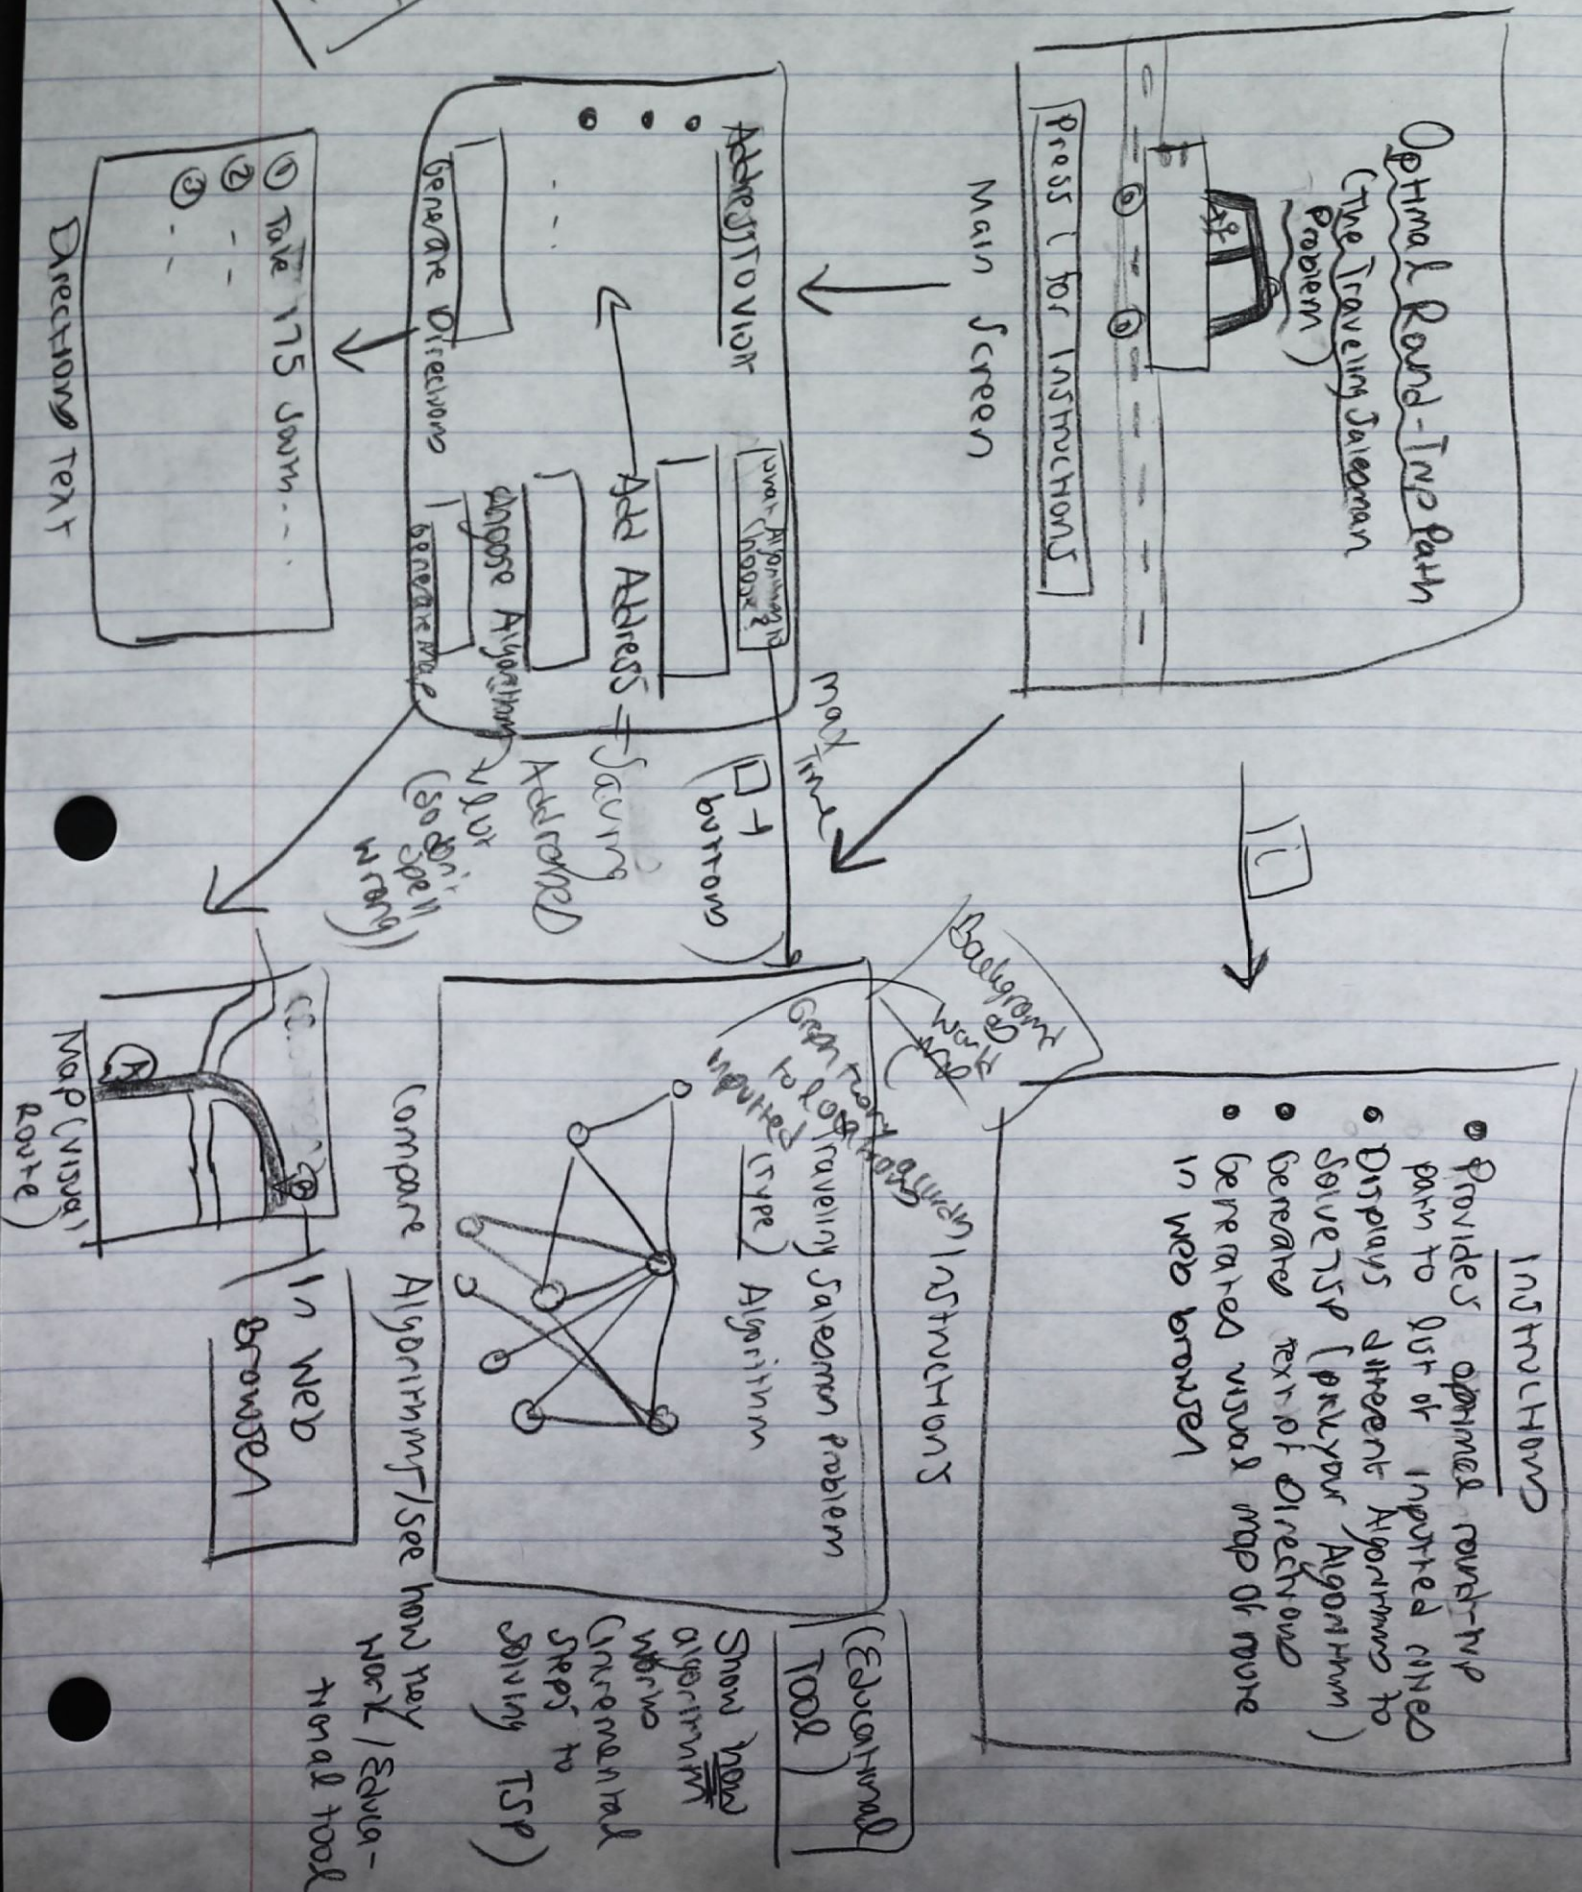 Optimal Round-Trip Path
(The Traveling Salesman
Problem)
Press i for Instructions
Main Screen
i
Instructions
• Provides optimal round-trip
path to list of inputted cities
• Displays different Algorithms to
solve TSP (pick your Algorithm)
• Generates text of Directions
• Generates visual map of route
in web browser
Instructions
Address to visit
What Algorithm to
Choose?
Add Address
Choose Algorithm
Generate Directions
Generate Map
max time
buttons)
Saving
Addresses
list
(so don't
spell
wrong)
① Take 175 South...
②
③
Directions Text
Background
Traveling Salesman Problem
(Type) Algorithm
Compare Algorithms/see how they
work/Educa-
tional tool
(Educational
Tool)
Show how
algorithm
works
(incremental
steps to
solving TSP)
A
B
Map (Visual
Route)
In Web
Browser